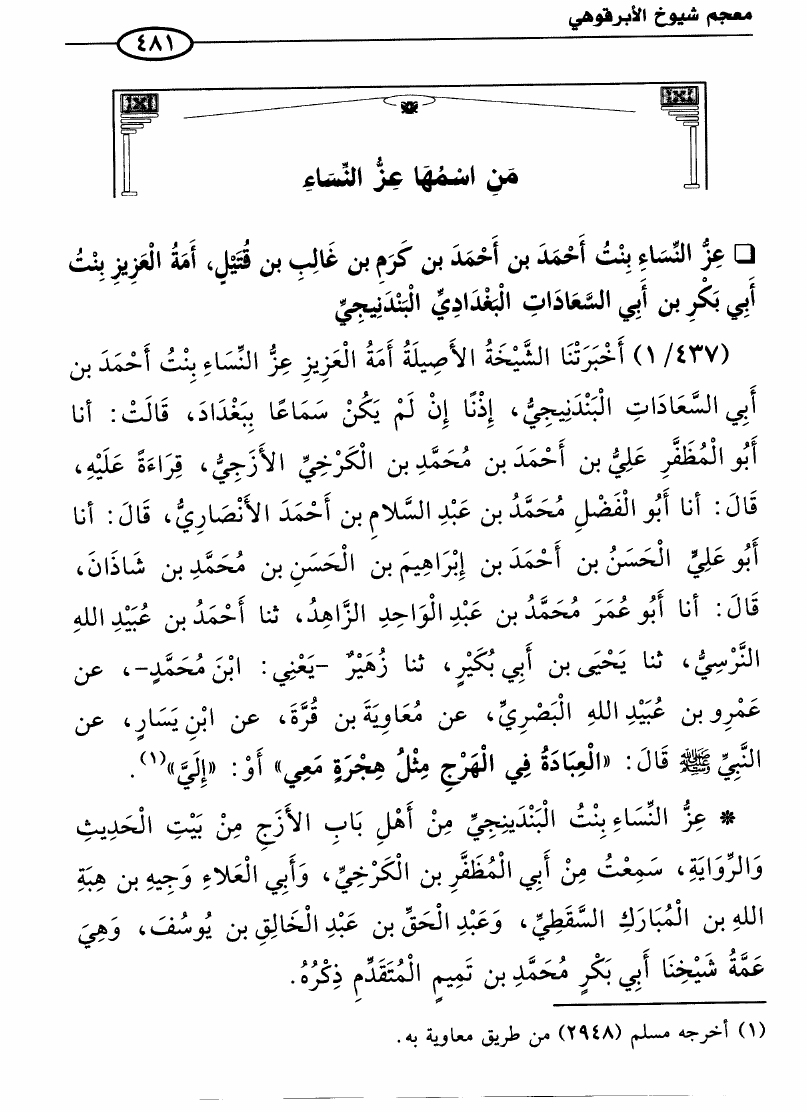 معجم شيوخ الأبرقوهي
٤٨١
مَنِ اسْمُهَا عِزُّ النِّسَاءِ
❑ عِزُّ النِّسَاءِ بِنْتُ أَحْمَدَ بن أَحْمَدَ بن كَرَمِ بن غَالِبِ بن قُتَيْلٍ، أَمَةُ الْعَزِيزِ بِنْتُ
أَبِي بَكْرِ بن أَبِي السَّعَادَاتِ الْبَغْدَادِيِّ الْبَنْدَنِيجِيِّ
(١/٤٣٧) أَخْبَرَتْنَا الشَّيْخَةُ الأَصِيلَةُ أَمَةُ الْعَزِيزِ عِزُّ النِّسَاءِ بِنْتُ أَحْمَدَ بن
أَبِي السَّعَادَاتِ الْبَنْدَنِيجِيُّ، إِذْنًا إِنْ لَمْ يَكُنْ سَمَاعًا بِبَغْدَادَ، قَالَتْ: أنا
أَبُو الْمُظَفَّرِ عَلِيُّ بن أَحْمَدَ بن مُحَمَّدِ بن الْكَرْخِيِّ الأَزَجِيُّ، قِرَاءَةً عَلَيْهِ،
قَالَ: أنا أَبُو الْفَضْلِ مُحَمَّدُ بن عَبْدِ السَّلامِ بن أَحْمَدَ الأَنْصَارِيُّ، قَالَ: أنا
أَبُو عَلِيٍّ الْحَسَنُ بن أَحْمَدَ بن إِبْرَاهِيمَ بن الْحَسَنِ بن مُحَمَّدِ بن شَاذَانَ،
قَالَ: أنا أَبُو عُمَرَ مُحَمَّدُ بن عَبْدِ الْوَاحِدِ الزَّاهِدُ، ثنا أَحْمَدُ بن عُبَيْدِ اللهِ
النَّرْسِيُّ، ثنا يَحْيَى بن أَبِي بُكَيْرٍ، ثنا زُهَيْرٌ -يَعْنِي: ابْنَ مُحَمَّدٍ-، عن
عَمْرِو بن عُبَيْدِ اللهِ الْبَصْرِيِّ، عن مُعَاوِيَةَ بن قُرَّةَ، عن ابْنِ يَسَارٍ، عن
النَّبِيِّ ﷺ قَالَ: «الْعِبَادَةُ فِي الْهَرْجِ مِثْلُ هِجْرَةٍ مَعِي» أَوْ: «إِلَيَّ»(١).
* عِزُّ النِّسَاءِ بِنْتُ الْبَنْدَيِنجِيِّ مِنْ أَهْلِ بَابِ الأَزَجِ مِنْ بَيْتِ الْحَدِيثِ
وَالرِّوَايَةِ، سَمِعْتُ مِنْ أَبِي الْمُظَفَّرِ بن الْكَرْخِيِّ، وَأَبِي الْعَلاءِ وَجِيهِ بن هِبَةِ
اللهِ بن الْمُبَارَكِ السَّقَطِيِّ، وَعَبْدِ الْحَقِّ بن عَبْدِ الْخَالِقِ بن يُوسُفَ، وَهِيَ
عَمَّةُ شَيْخِنَا أَبِي بَكْرٍ مُحَمَّدِ بن تَمِيمٍ الْمُتَقَدِّمِ ذِكْرُهُ.
(١) أخرجه مسلم (٢٩٤٨) من طريق معاوية به.